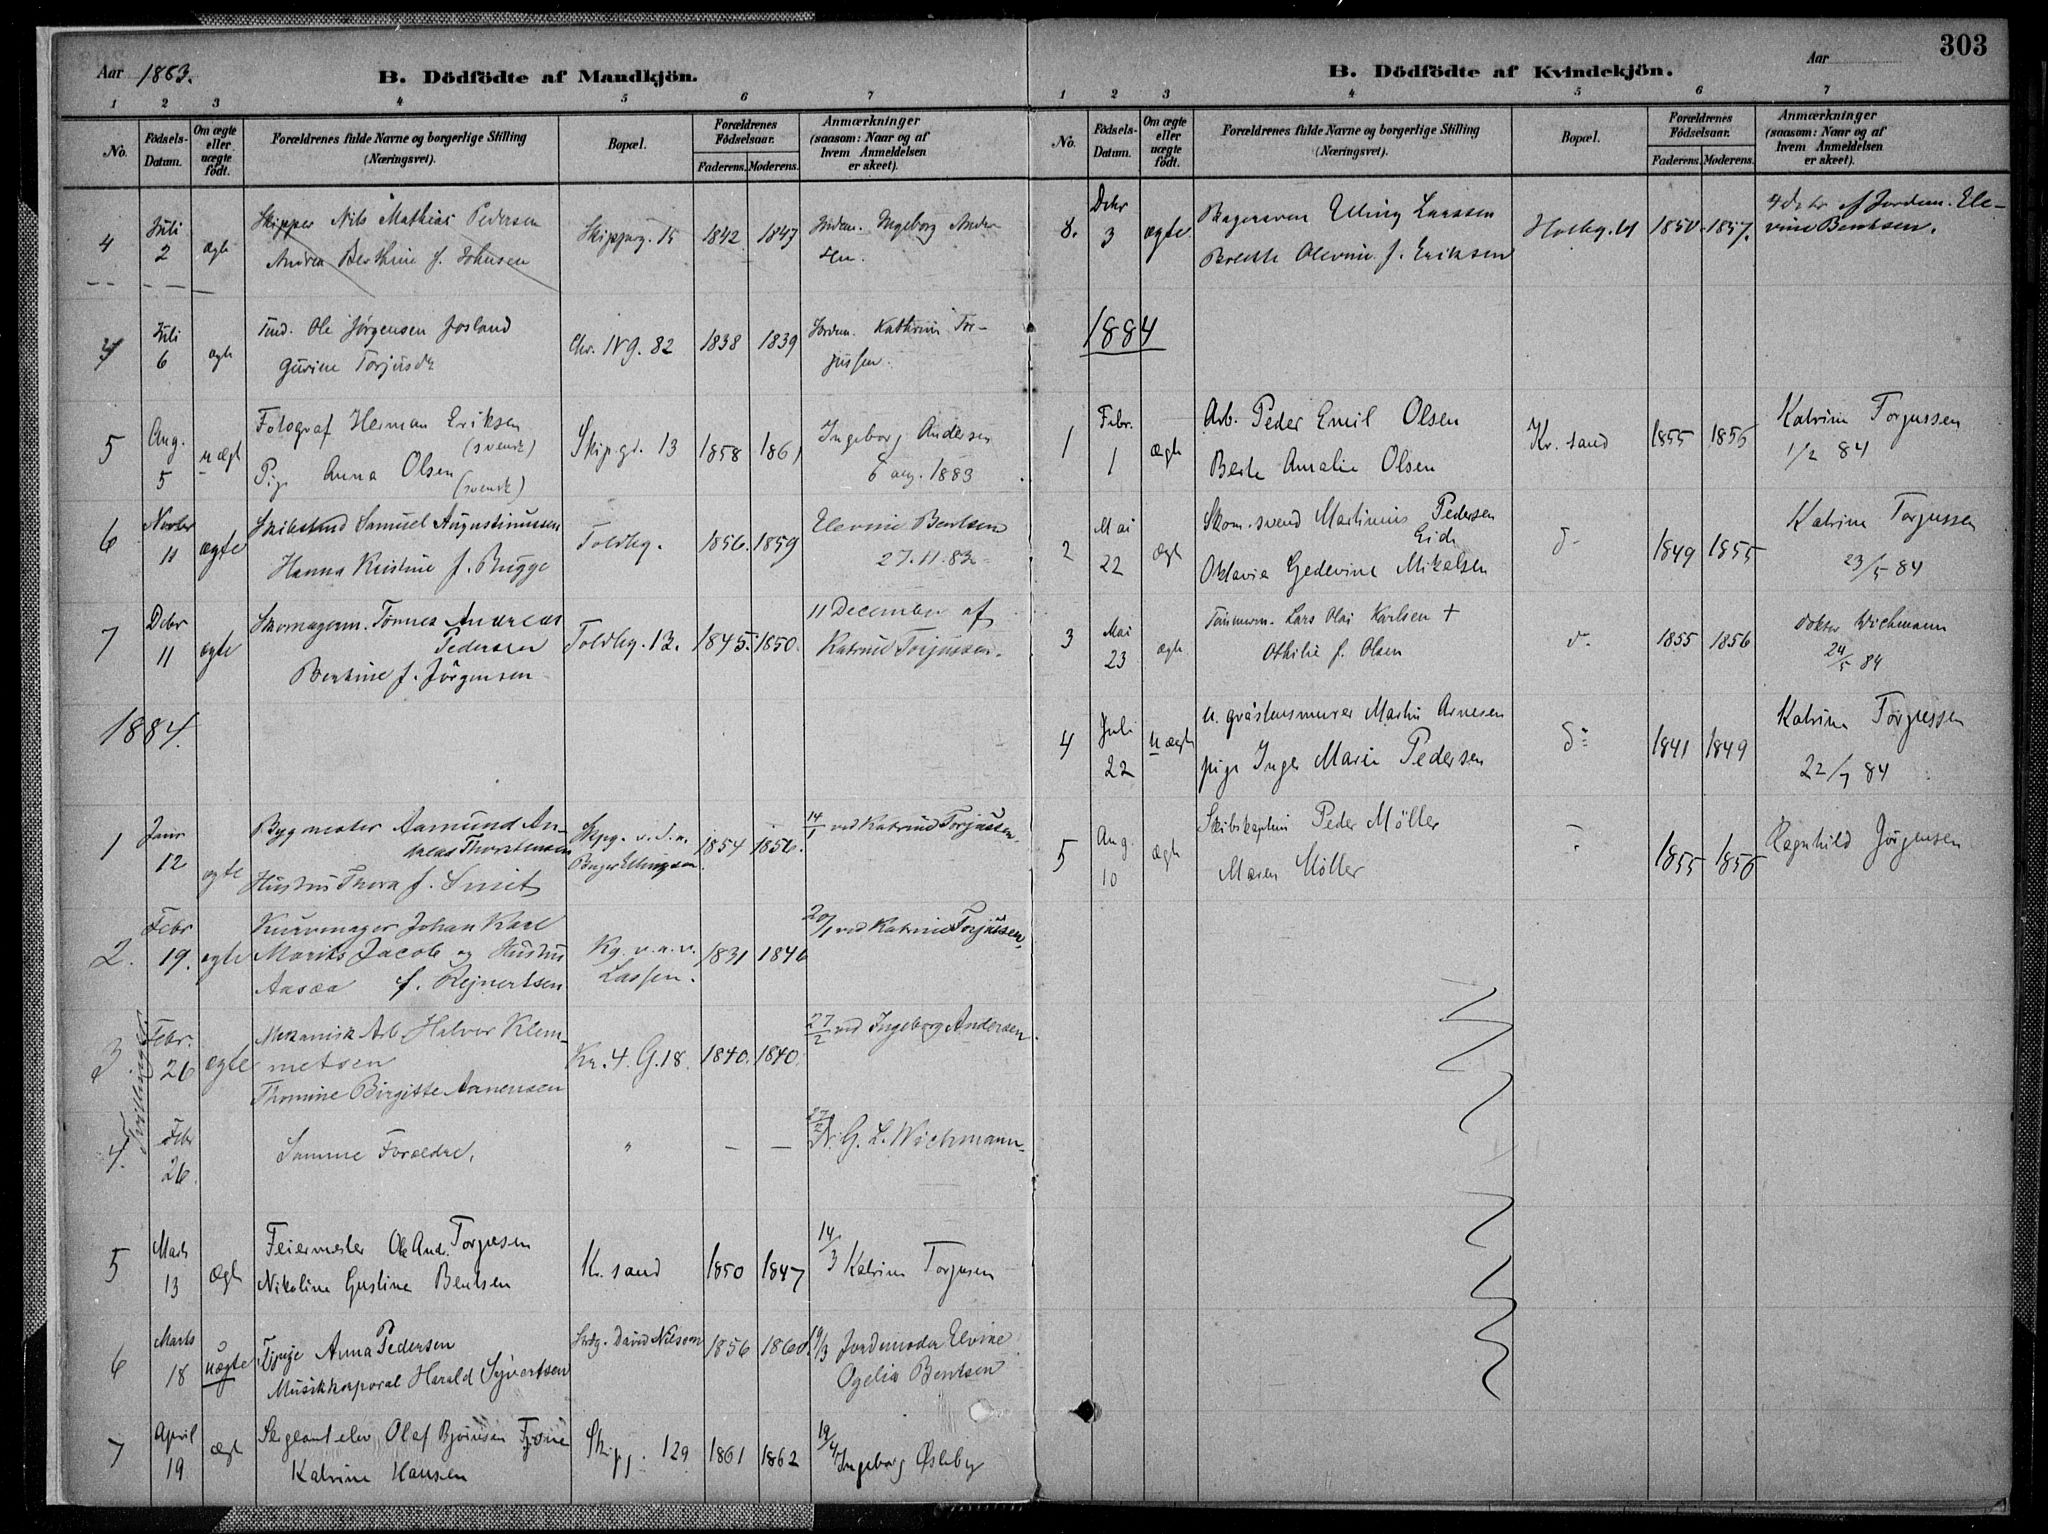 Aar 1883. B. Dödfödte af Mandkjön.
1 2 3 4 5 6 7
No. Födsels-Datum. Om ægte eller uægte födt. Forældrenes fulde Navne og borgerlige Stilling (Næringsvei). Bopæl. Forældrenes Födselsaar. Faderens. Moderens. Anmærkninger (saasom: Naar og af hvem Anmeldelsen er skeet).
4 Juli 2 ægte Skipper Nils Mathias Pedersen Skippurg. 15 1842 1847 Jordm. Ingeborg Ander
Andrea Berthine f. Johnsen sen.
4 Juli 6 ægte Tind. Ole Jørgensen Josland Chr. IV g. 82 1838 1839 Jordm. Kathrine Tor-
Gurine Torjusdr jussen.
5 Aug. 5 uægt Fotograf Herman Eriksen (svensk) Skip.gd. 13 1858 1861 Ingeborg Andersen
Pig. Anna Olsen (svensk) 6 aug. 1883
6 Novbr 11 ægte Samuel Augustinussen Toldbg. 1856. 1859 Elevine Bentsen
Hanna Kristine f. Bugge 27.11.83
7 Dcbr 11 ægte Skomagerm. Tønnes Andreas Pedersen Toldbg. 13. 1845. 1850. 11 December af
Bentine f. Jörgensen Katrine Torjussen.
1884.
1 Janr 12 ægte Bygmester Aamund An-
dreas Thorstensen 1854 1856. 14/1 ved Katrine Torjussen.
Hustru Thora f. Smit
2. Febr 19. ægte Kurvmager Johan Karl
Morits Jacob og Hustru Kg. v. a. v. 1831 1840 20/1 ved Katrine Torjussen.
Aasæa f. Rejnertsen Lassen.
Tvillinger
3 Febr. 26 ægte Mekanisk Arb. Halvor Klem-
metsen Kr. 4. G. 18. 1840. 1840. 27/2 ved Ingeborg Andersen.
Thomine Birgitte Arnensen
4. Febr 26 Samme Forældre. " — — 27/2 Dr. G. L. Wichmann
5 Marts 13 ægte Feiermester Ole And. Torjusen Kr. sand 1850 1847 14/3 Katrine Torjusen
Nikoline Gustine Bentsen
6 Marts 18 uægte Anna Pedersen David Nilsson 1856 1860. 19/3 Jordmoder Elvine
Musikkorporal Harald Syvertsen Ogelia Bentsen
7 April 19 ægt Sergeantelev Olaf Skipg. 129 1861 1862 19/4 Ingeborg Øsleby
Katrine Hansen
303
B. Dödfödte af Kvindekjön. Aar
1 2 3 4 5 6 7
No. Födsels-Datum. Om ægte eller uægte födt. Forældrenes fulde Navne og borgerlige Stilling (Næringsvei). Bopæl. Forældrenes Födselsaar. Faderens. Moderens. Anmærkninger (saasom: Naar og af hvem Anmeldelsen er skeet).
8. Dcbr 3 ægte Bagersven Elling Larssen Holbg. 1850. 1857. 4 Dcbr af Jordem. Ele-
Olevine f. Eriksen vine Bentsen.
1884
1 Febr. 1 ægte Arb. Peder Emil Olsen Kr. sand 1855 1856 Katrine Torjussen
Berte Amalie Olsen 1/2 84
2 Mai 22 ægte Skom. svend Martinius Pedersen Eide d- 1849 1855 Katrine Torjussen
Oktavia Gedevine Mikalsen 23/5 84
3 Mai 23 ægte Tømmerm. Lars Olai Karlsen + d- 1855 1856 doktor Wichmann
Othilie f. Olsen 24/5 84
4 Juli 22 uægte u. gråstensmurer Martin Arnesen d: 1841 1849 Katrine Torjussen
pige Inger Marie Pedersen 22/7 84
5 Aug. 10 ægte Skibskaptein Peder Möller 1855 1856 Ragnhild Jörgensen
Maren Möller